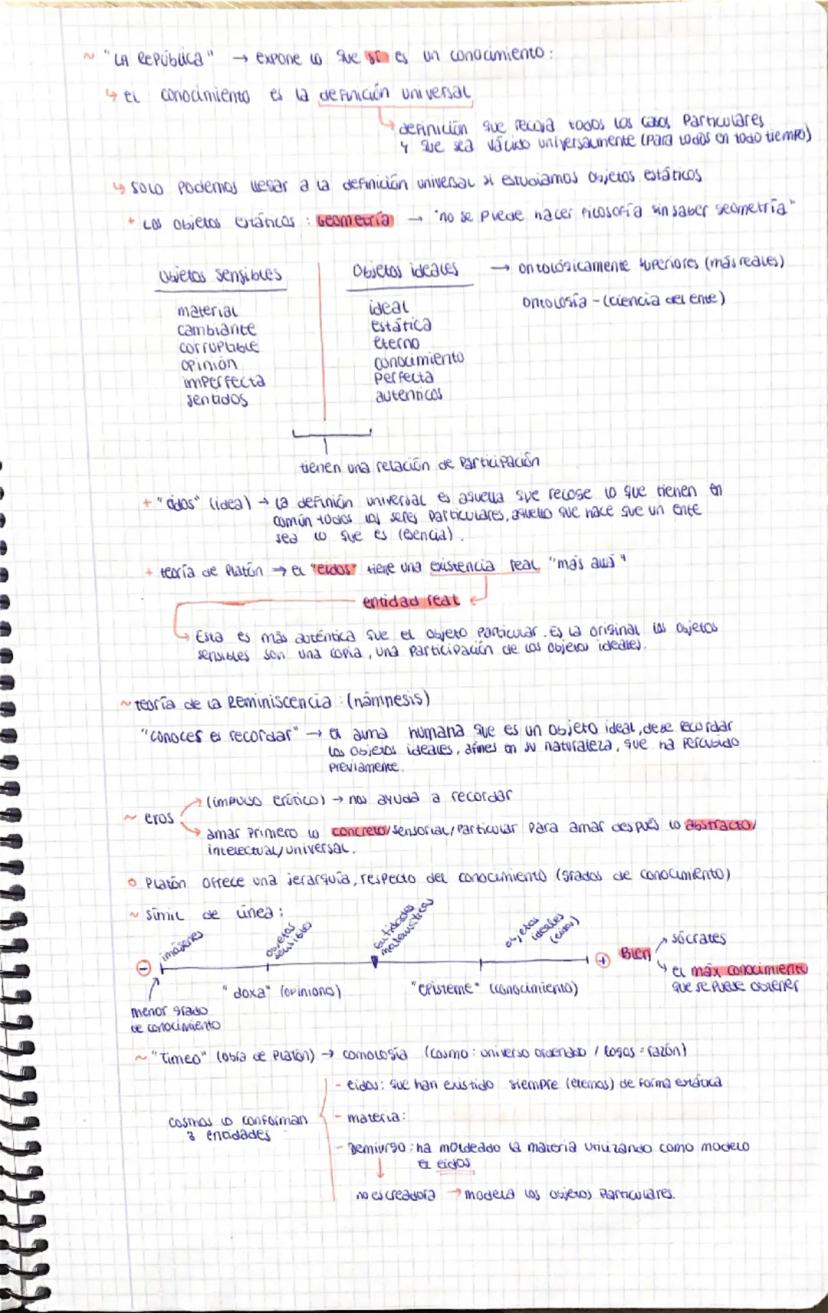 ~ "LA REPÚBLICA" → expone lo que sí es un conocimiento:
↳ el conocimiento es la definición universal
↳ definición que recoja todos los casos particulares
y que sea válido universalmente (para todos en todo tiempo)
↳ solo podemos llegar a la definición universal si estudiamos objetos estáticos
* Los objetos estáticos : Geometría → "no se puede hacer filosofía sin saber geometría"
Objetos sensibles
material
cambiante
corruptible
opinión
imperfecta
sentidos
Objetos ideales → ontológicamente superiores (más reales)
ontología - (ciencia del ente)
ideal
estática
eterno
conocimiento
perfecta
autenticos
tienen una relación de participación
+ "eidos" (idea) → la definión universal es aquella que recoge lo que tienen en
común todos los seres particulares, aquello que hace que un ente
sea lo que es (esencia).
+ teoría de Platón → el "eidos" tiene una existencia real "más allá"
entidad real
↳ Esta es más auténtica que el objeto particular. Es la original los objetos
sensibles son una copia, una participación de los objetos ideales.
~ teoría de la Reminiscencia : (námnesis)
"conoces es recordar" → el alma humana que es un objeto ideal, debe recordar
los objetos ideales, afines en su naturaleza, que ha percibido
previamente.
~ eros
→ (impulso erótico) → nos ayuda a recordar
→ amar primero lo concreto/sensorial/particular para amar después lo abstracto/
intelectual/universal.
o Platón ofrece una jerarquía, respecto del conocimiento (grados de conocimiento)
~ símil de línea :
imágenes
objetos sensibles
entidades matemáticas
objetos ideales (eidos)
- + Bien
→ sócrates
↳ el máx conocimiento
que se puede obtener
"doxa" (opiniones) "episteme" (conocimiento)
menor grado
de conocimiento
~ "Timeo" (obra de Platón) → comología (cosmo : universo ordenado / logos = razón)
cosmos lo conforman
3 entidades
- eidos : que han existido siempre (eternos) de forma estática
- materia:
- Demiurgo : ha moldeado la materia utilizando como modelo
el eidos
no es creadora → modela los objetos particulares.